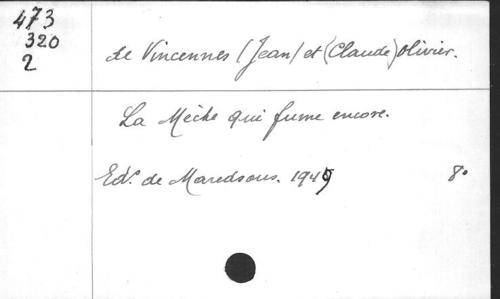 473
320
2
de Vincennes (Jean) et (Claude) Olivier.
La Mèche qui fume encore.
Ed.s de Maredsous. 1949 8°